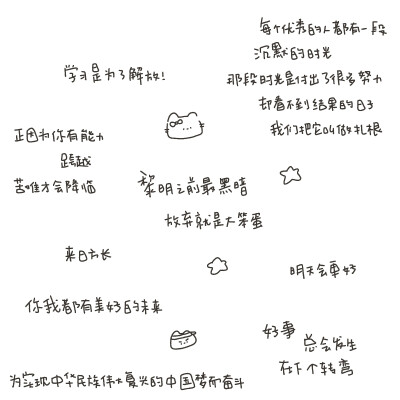 每个优秀的人都有一段
沉默的时光
那段时光是付出了很多努力
却看不到结果的日子
我们把它叫做扎根
学习是为了解放!
正因为你有能力
跨越
苦难才会降临
黎明之前最黑暗
放弃就是大笨蛋
来日方长
明天会更好
你我都有美好的未来
好事
总会发生
在下个转弯
为实现中华民族伟大复兴的中国梦而奋斗